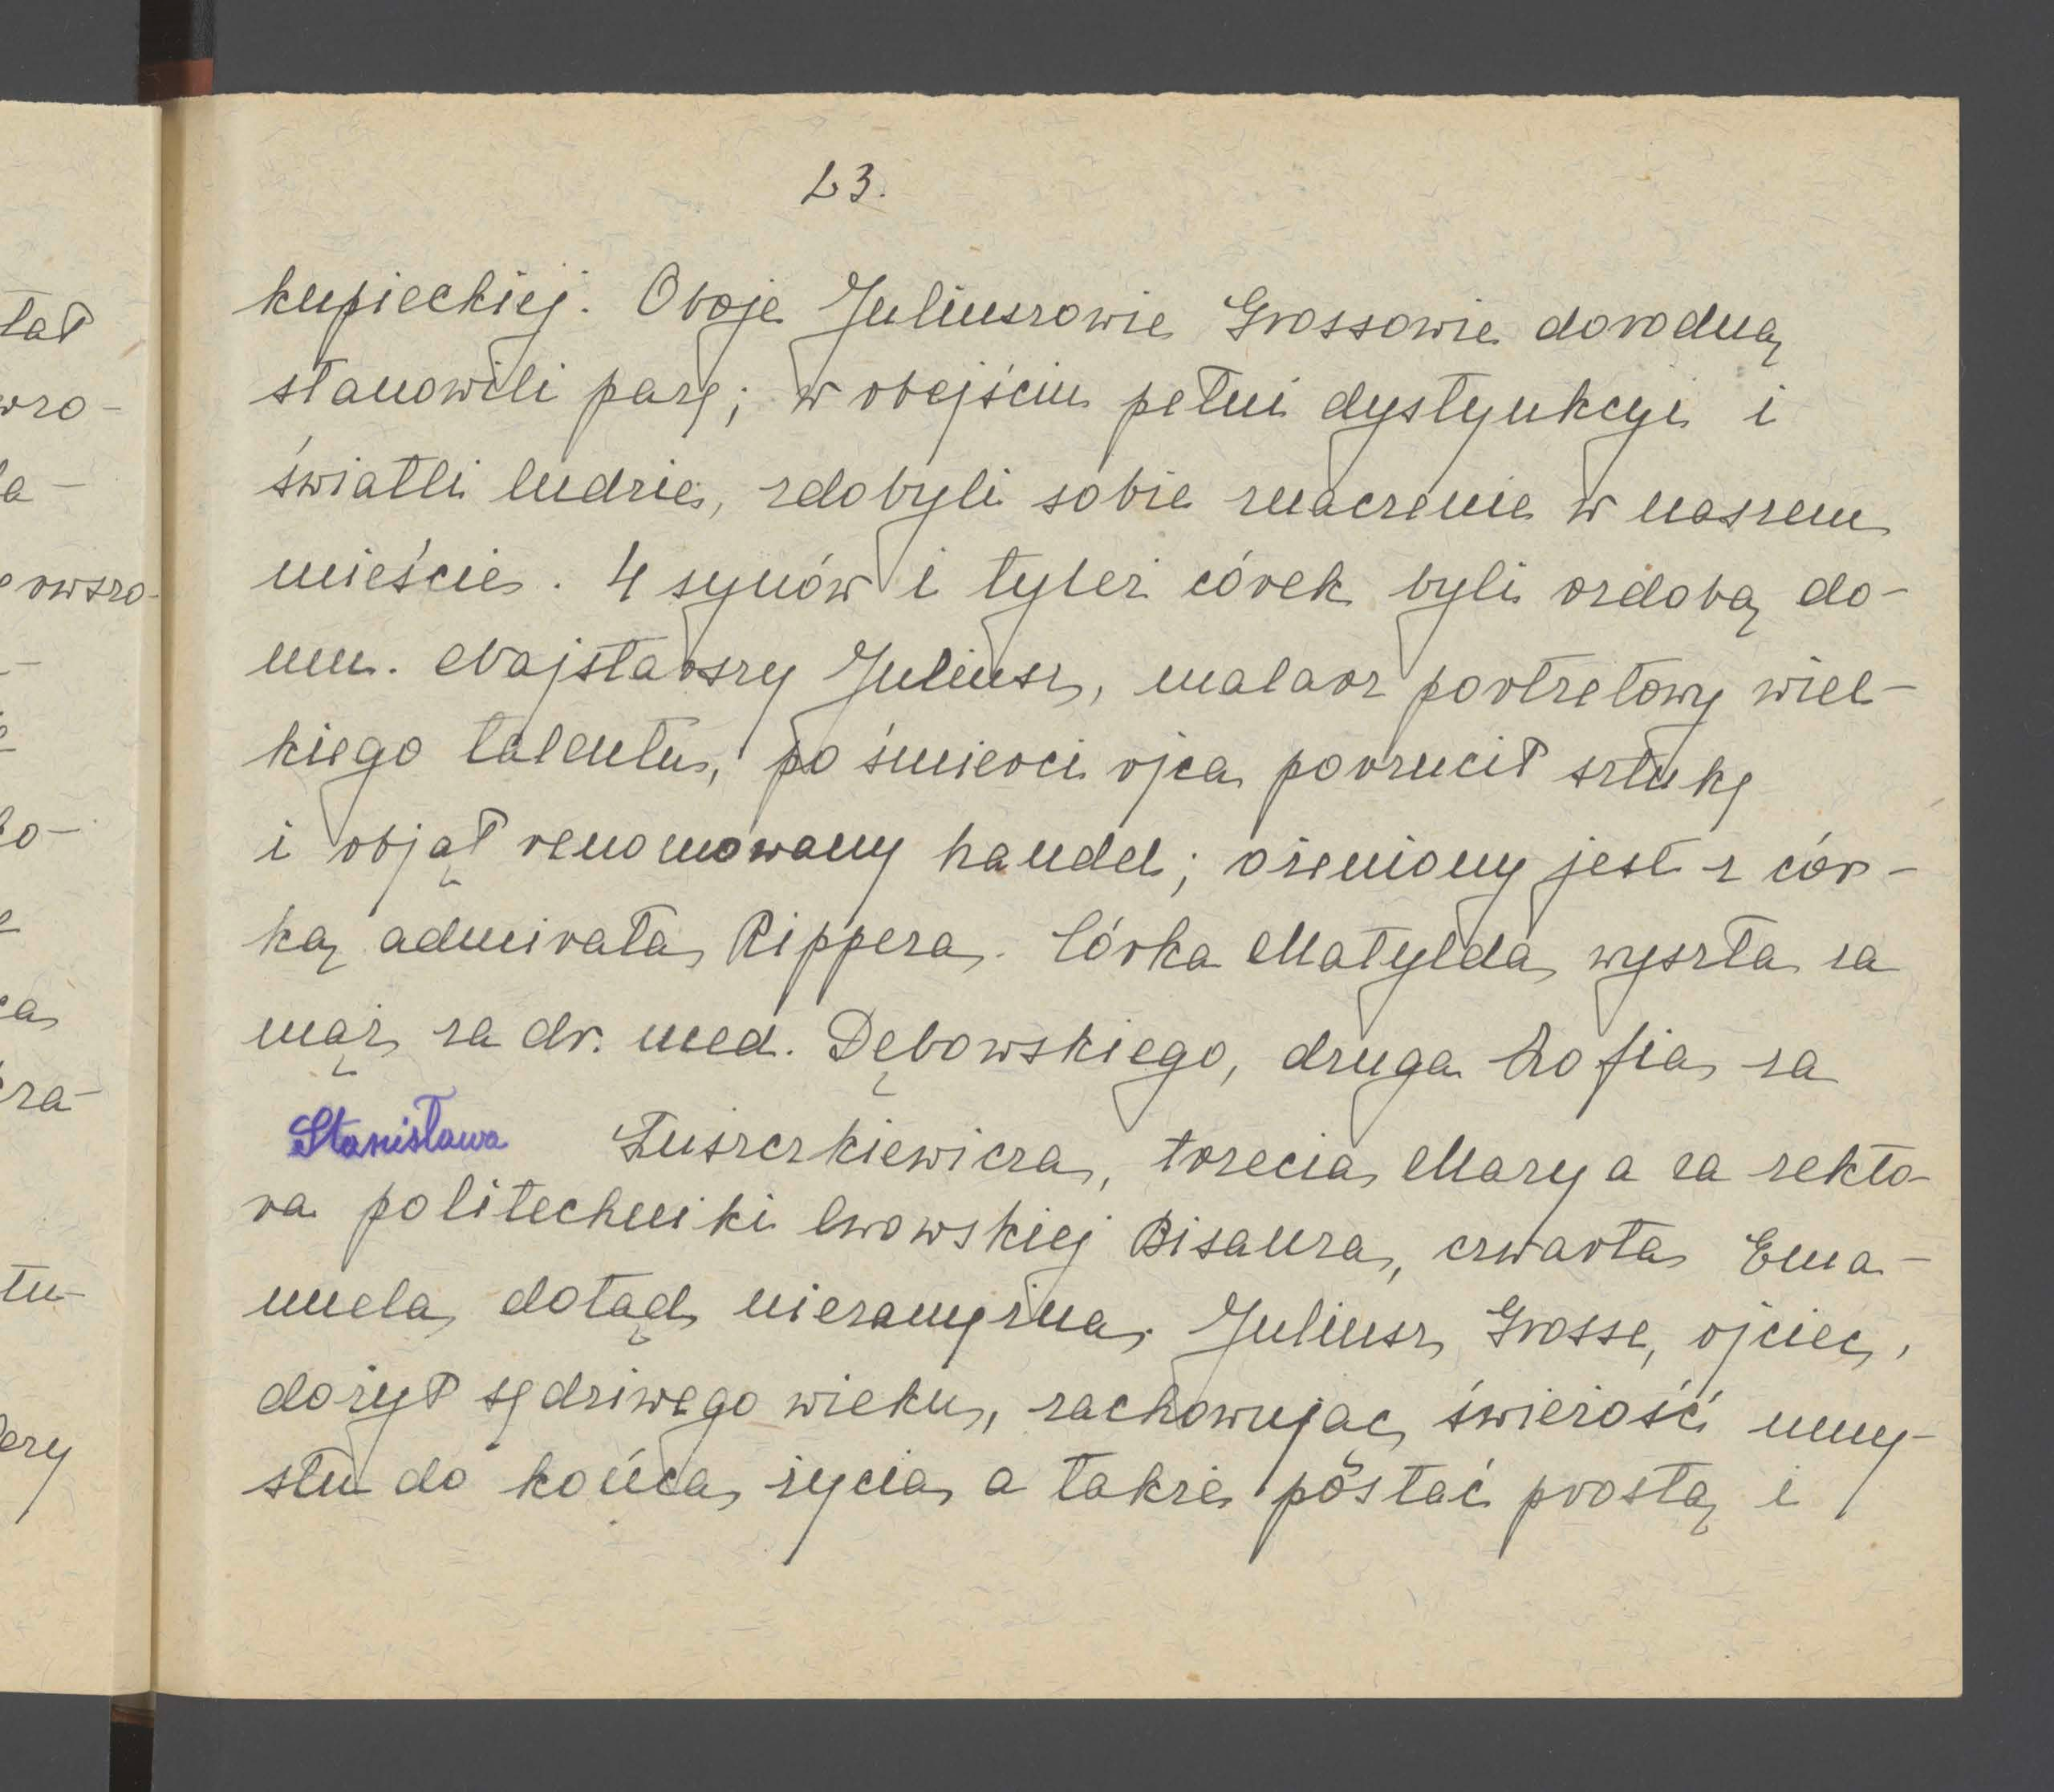 23.
kupieckiej. Oboje Juliuszowie Grossowie dorodną
stanowili parę; w obejściu pełni dystynkcyi i
światli ludzie, zdobyli sobie znaczenie w naszem
mieście. 4 synów i tyleż córek byli ozdobą do-
mu. Najstarszy Juliusz, malarz portretowy wiel-
kiego talentu, po śmierci ojca porzucił sztukę
i objął renomowany handel; ożeniony jest z cór-
ką admirała Rippera. Córka Matylda wyszła za
mąż za dr. med. Dębowskiego, druga Zofia za
Stanisława Łuszczkiewicza, trzecia Marya za rekto-
ra politechniki lwowskiej Bisanza, czwarta Ema-
nuela dotąd niezamężna. Juliusz Grosse, ojciec,
dożył sędziwego wieku, zachowując świeżość umy-
słu do końca życia a także postać prostą i
tał
wro-
la-
owszo-
ca
tu-